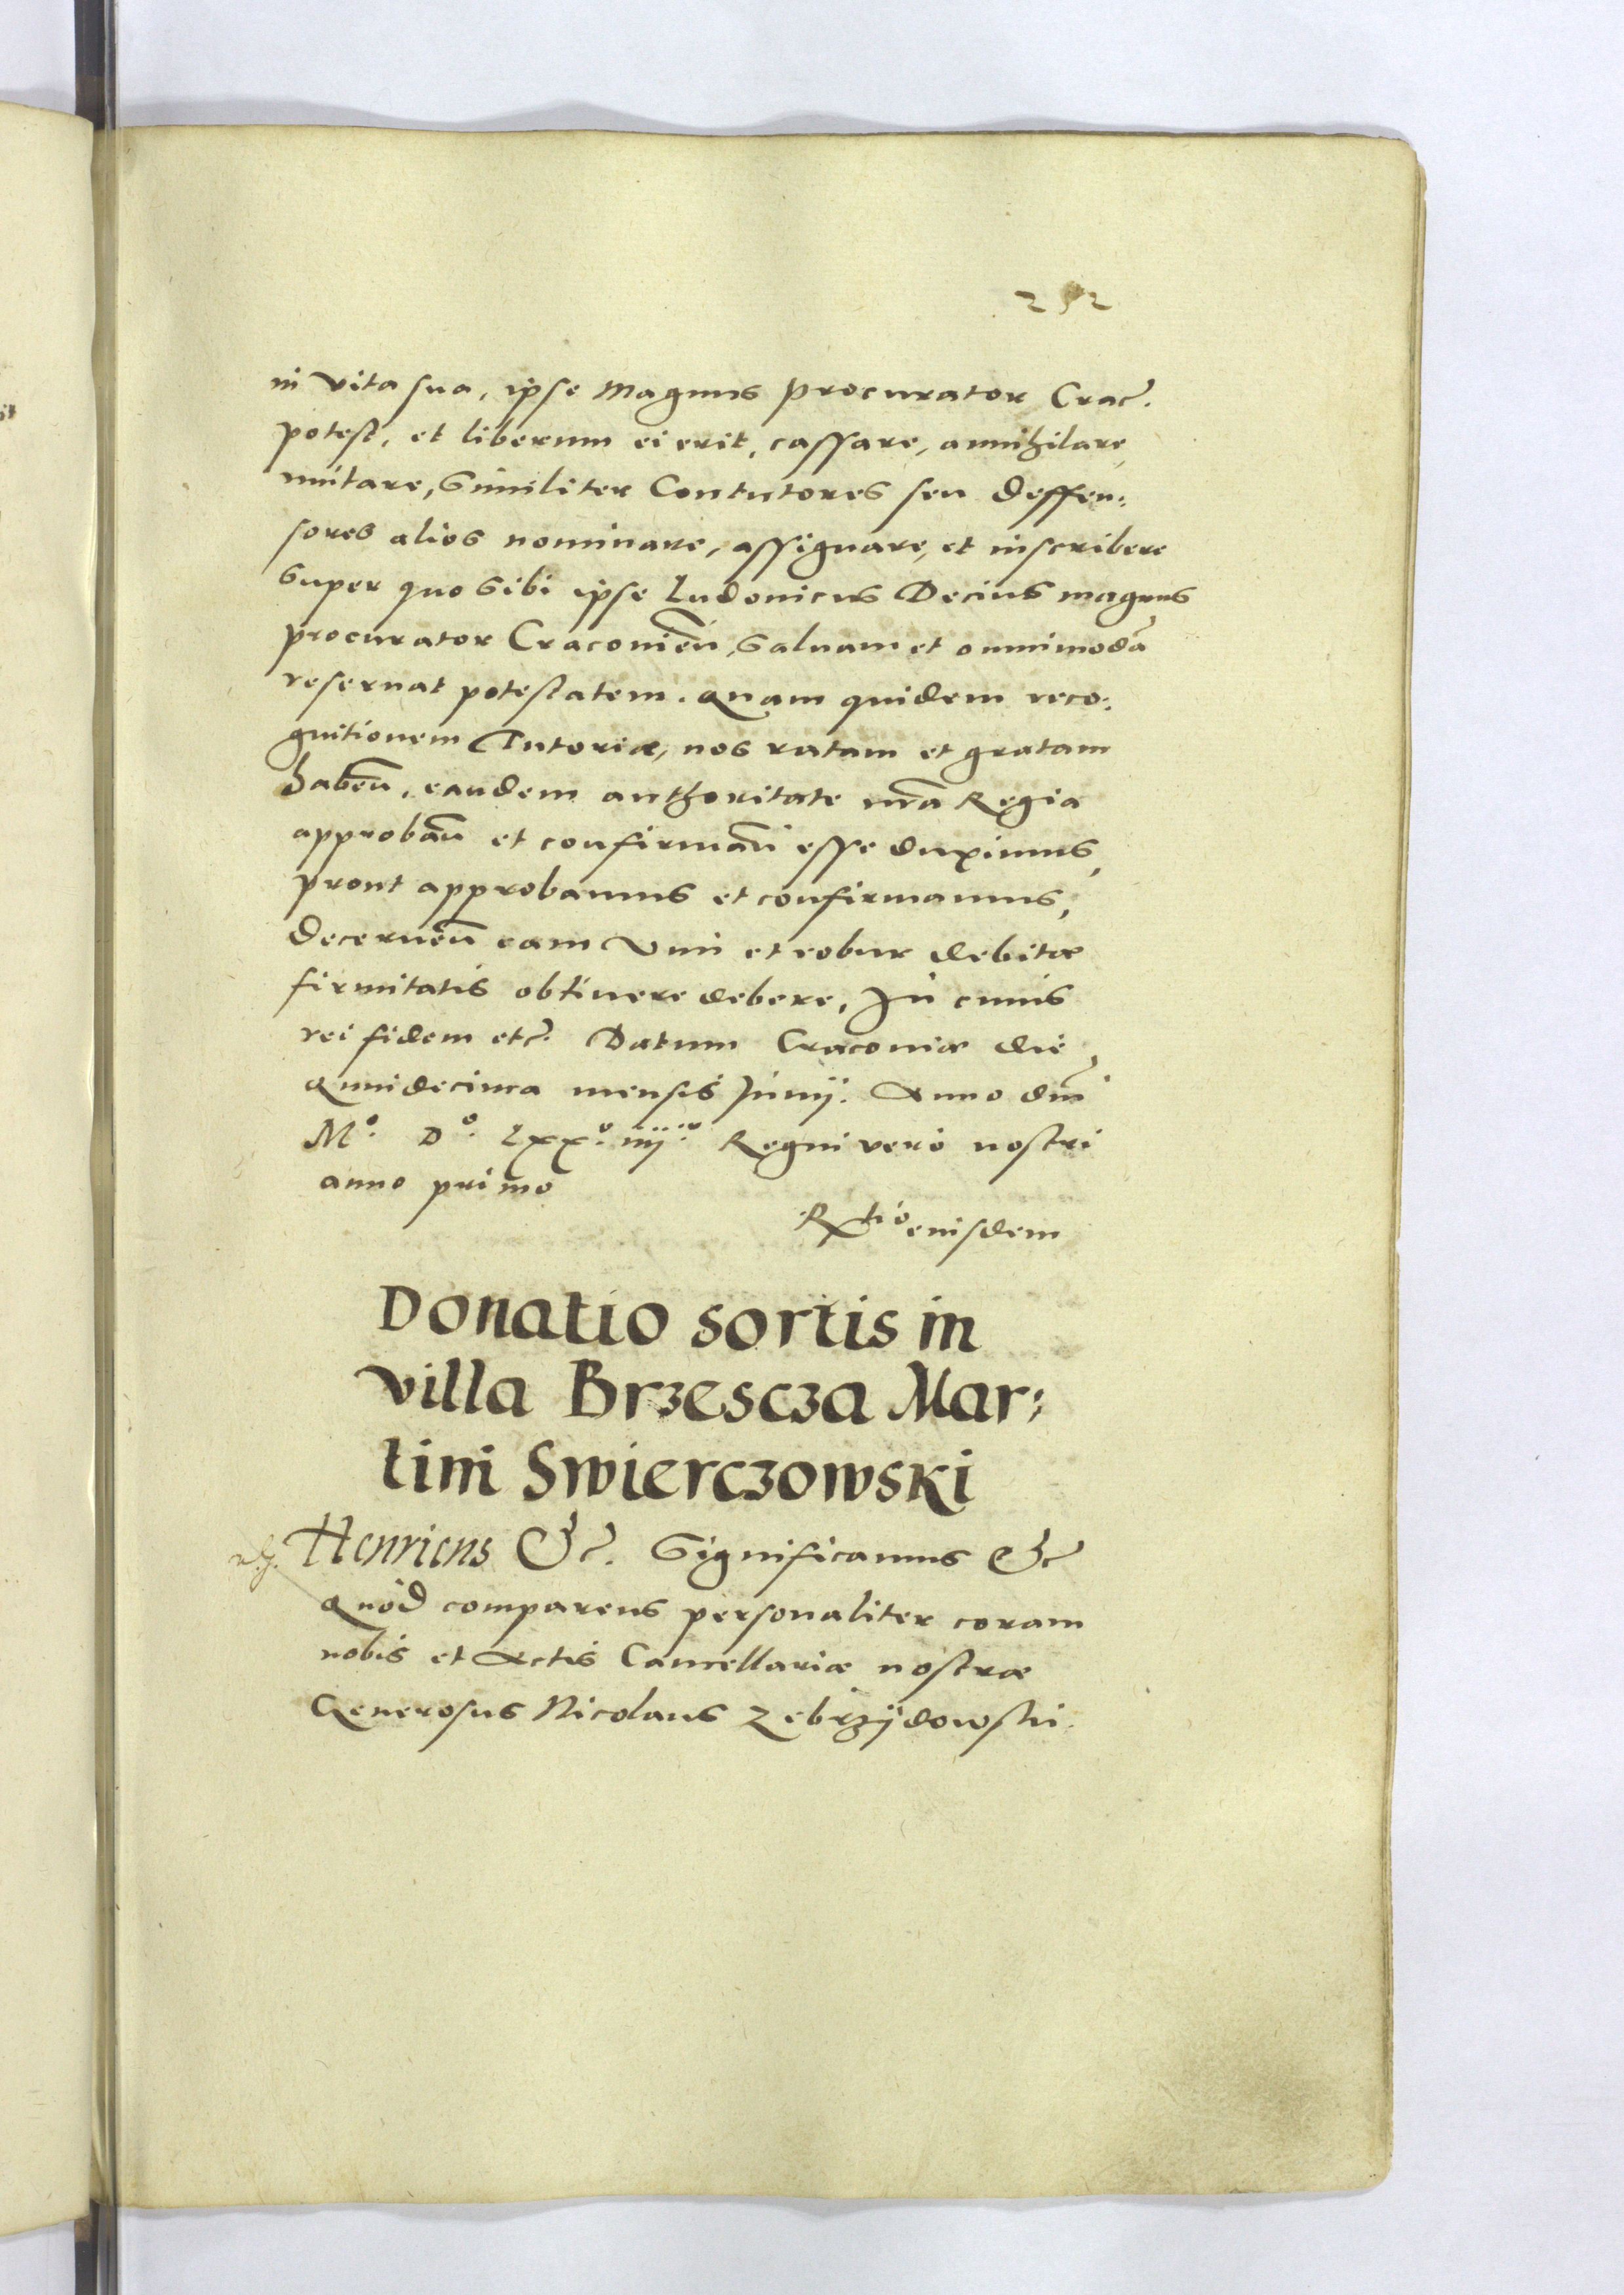 252
in vita sua, ipse Magnus procurator Crac.
potest, et liberum ei erit, cassare, annihilare,
mutare, Similiter Contutores seu deffen:
sores alios nominare, assignare, et inscribere
super quo sibi ipse Ludouicus Decius magnus
procurator Cracouien̄, saluam et omnimodā
reseruat potestatem. Quam quidem reco:
gnitionem Tutoriæ, nos ratam et gratam
haben̄, eandem authoritate nrā Regia
approban̄ et confirman̄ esse duximus,
prout approbamus et confirmamus,
decernen̄ eam vim et robur debitæ
firmitatis obtinere debere, In cuius
rei fidem etc. Datum Cracouiæ die
quindecima mensis Junij. Anno dn̄i
Mº. Dº. Lxxº. iiijº. Regni verò nostri
anno primo
Rtio eiusdem
Donatio sortis in
villa Brzescza Mar:
tini Swierczowski
Henricus &c. Significamus &c
Quòd comparens personaliter coram
nobis et Actis Cancellariæ nostræ
Generosus Nicolaus Zebrzijdowski.